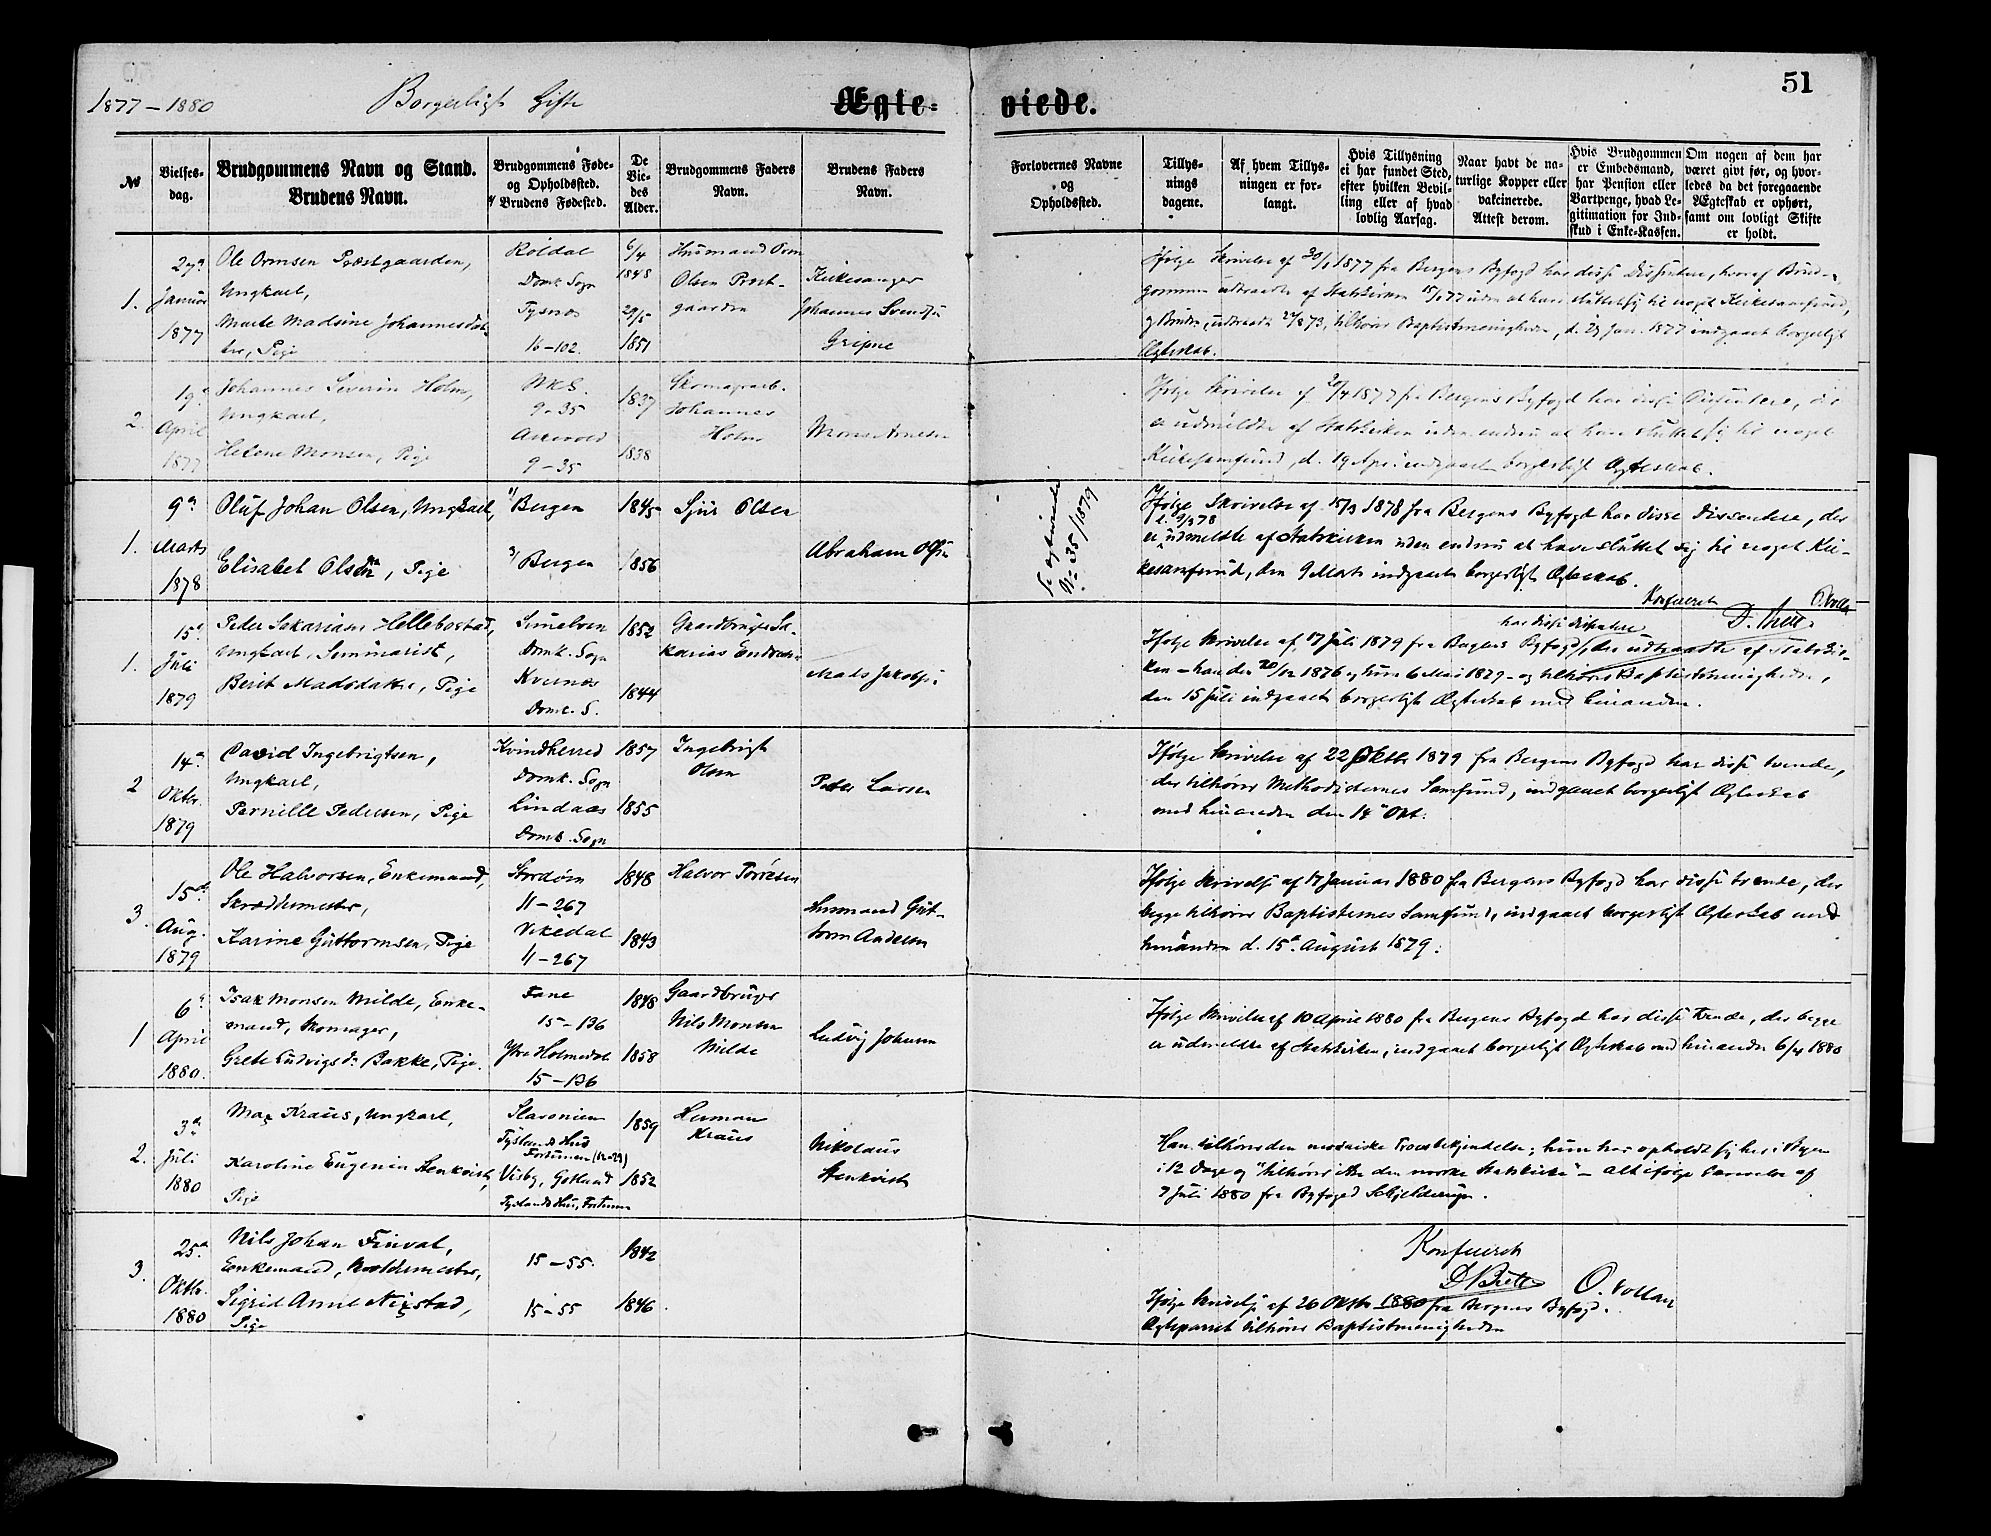 51
1877 – 1880 Borgerligt Gifte Ægte- viede.
№
Vielses-
dag.
Brudgommens Navn og Stand.
Brudens Navn.
Brudgommens Føde-
og Opholdssted.
Brudens Fødested.
De
Vie-
des
Alder.
Brudgommens Faders
Navn.
Brudens Faders
Navn.
Forlovernes Navne
og
Opholdssted.
Tillys-
nings
dagene.
Af hvem Tillys-
ningen er for-
langt.
Hvis Tillysning
ei har fundet Sted,
efter hvilken Bevil-
ling eller af hvad
lovlig Aarsag.
Naar havt de na-
turlige Kopper eller
vakcinerede.
Attest derom.
Hvis Brudgommen
er Embedsmand,
har Pension eller
Vartpenge, hvad Le-
gitimation for Ind-
skud i Enke-Kassen.
Om nogen af dem har
været givt før, og hvor-
ledes da det foregaaende
Ægteskab er ophørt,
samt om lovligt Skifte
er holdt.
1.
27de
Januar
1877
Ole Ormsen Præstgaarden,
Ungkarl,
Marte Madsine Johannesdat-
ter, Pige
Røldal
Domk. Sogn
Tysnæs
16–102.
6/4
1848
29/5
1851
Husmand Orm
Olsen Præst-
gaarden
Kirkesanger
Johannes Svends.
Gripne
Ifølge Skrivelse af 30/1 1877 fra Bergens Byfogd har disse Dissentere, hvoraf Brud-
gommen udtraadte af Statskirken 15/1 77 uden at have sluttet sig til noget Kirkesamfund,
og Bruden, udtraadt 73, tilhører Baptistmenigheden, d. 27 Jan. 1877 indgaaet borgerligt
Ægteskab.
2.
19de
April
1877
Johannes Severin Holm,
Ungkarl,
Helene Monsen, Pige
N.K.S.
9–35
Askevold
9–35
1837
1838
Skomagerarb.
Johannes
Holm
Mons Arnesen
Ifølge Skrivelse af 20/4 1877 fra Bergens Byfogd har disse Dissentere, der
er udmeldte af Statskirken uden endnu at have sluttet sig til noget
Kirkesamfund, d. 19 April indgaaet borgerligt Ægteskab.
1.
9de
Marts
1878
Oluf Johan Olsen, Ungkarl,
Elisabet Olsen, Pige
Bergen
Bergen
1845
1856
Sjur Olsen
Abraham Olsen
No 35/1879
Ifølge Skrivelse af 15/3 1878 fra Bergens Byfogd har disse Dissentere, der
d. 9/3 78
er udmeldte af Statskirken uden endnu at have sluttet sig til noget Kir-
kesamfund, den 9 Marts indgaaet borgerligt Ægteskab.
Konfereret
1.
15de
Juli
1879
Peder Sakariasen Hellebostad,
Ungkarl, Seminarist,
Berit Madsdatter, Pige
Domk. Sogn
Kvernes
Domk. S.
1852
1844
Gaardbruger Sa-
karias Endresen
Mads Jakobs.
har disse Dissentere
Ifølge Skrivelse af 17 Juli 1879 fra Bergens Byfogd, der udtraadte af Statskir-
ken – han den 20/12 1876 og hun 6 Mai 1879 – og tilhører Baptistmenigheden,
den 15 Juli indgaaet borgerligt Ægteskab med hinanden.
2
14de
Oktbr.
1879
David Ingebrigtsen,
Ungkarl,
Pernille Pedersen, Pige
Kvindherred
Domk. Sogn
Lindaas
Domk. Sogn
1857
1855
Ingebrigt
Olsen
Peder Larsen
Ifølge Skrivelse af 22 Oktbr 1879 fra Bergens Byfogd har disse tvende,
der tilhører Methodisternes Samfund, indgaaet borgerligt Ægteskab
med hinanden den 14 Okt.
3.
15de
Aug.
1879
Ole Halvorsen, Enkemand,
Skræddermester,
Karine Guttormsen, Pige
Stordøen
11–267
Vikedal
11–267
1848
1843
Halvor Torresen
Husmand Gut-
torm Andersen
Ifølge Skrivelse af 17 Januar 1880 fra Bergens Byfogd har disse tvende, der
begge tilhører Baptisternes Samfund, indgaaet borgerligt Ægteskab med
hinanden d. 15de August 1879.
1
6de
April
1880.
Isak Monsen Milde, Enke-
mand, Skomager,
Grete Ludvigsd. Bakke, Pige.
Fane
15–136
Ytre Holmedal
15–136
1848
1858
Gaardbruger
Nils Monsen
Milde
Ludvig Johansen
Ifølge Skrivelse af 10 April 1880 fra Bergens Byfogd har disse tvende, der begge
er udmeldte af Statskirken, indgaaet borgerligt Ægteskab med hinanden 6/4 1880
2.
3de
Juli
1880
Max Kraus, Ungkarl,
Karoline Eugenia Stenkvist,
Pige
Slavonien
Tyslands Hus
Fortunen (12–29)
Visby, Gotland
Tyslands Hus, Fortunen
1859
1852
Herman
Kraus
Nikolaus
Stenkvist
Han tilhører den mosaiske Troesbekjendelse; hun har opholdt sig her i Byen
i 12 Dage og "tilhører ikke den norske Statskirke" – alt ifølge Skrivelse af
7 Juli 1880 fra Byfoged Schjelderup.
3.
25de
Oktbr.
1880
Nils Johan Finval,
Enkemand,
Sigrid Anne Nistad,
Pige
15–55.
15–55
1842
1846
Konfereret
O. Vollan
Ifølge Skrivelse af 26 Oktbr 1880 fra Bergens Byfogd.
Ægteparret tilhører Baptistmenigheden